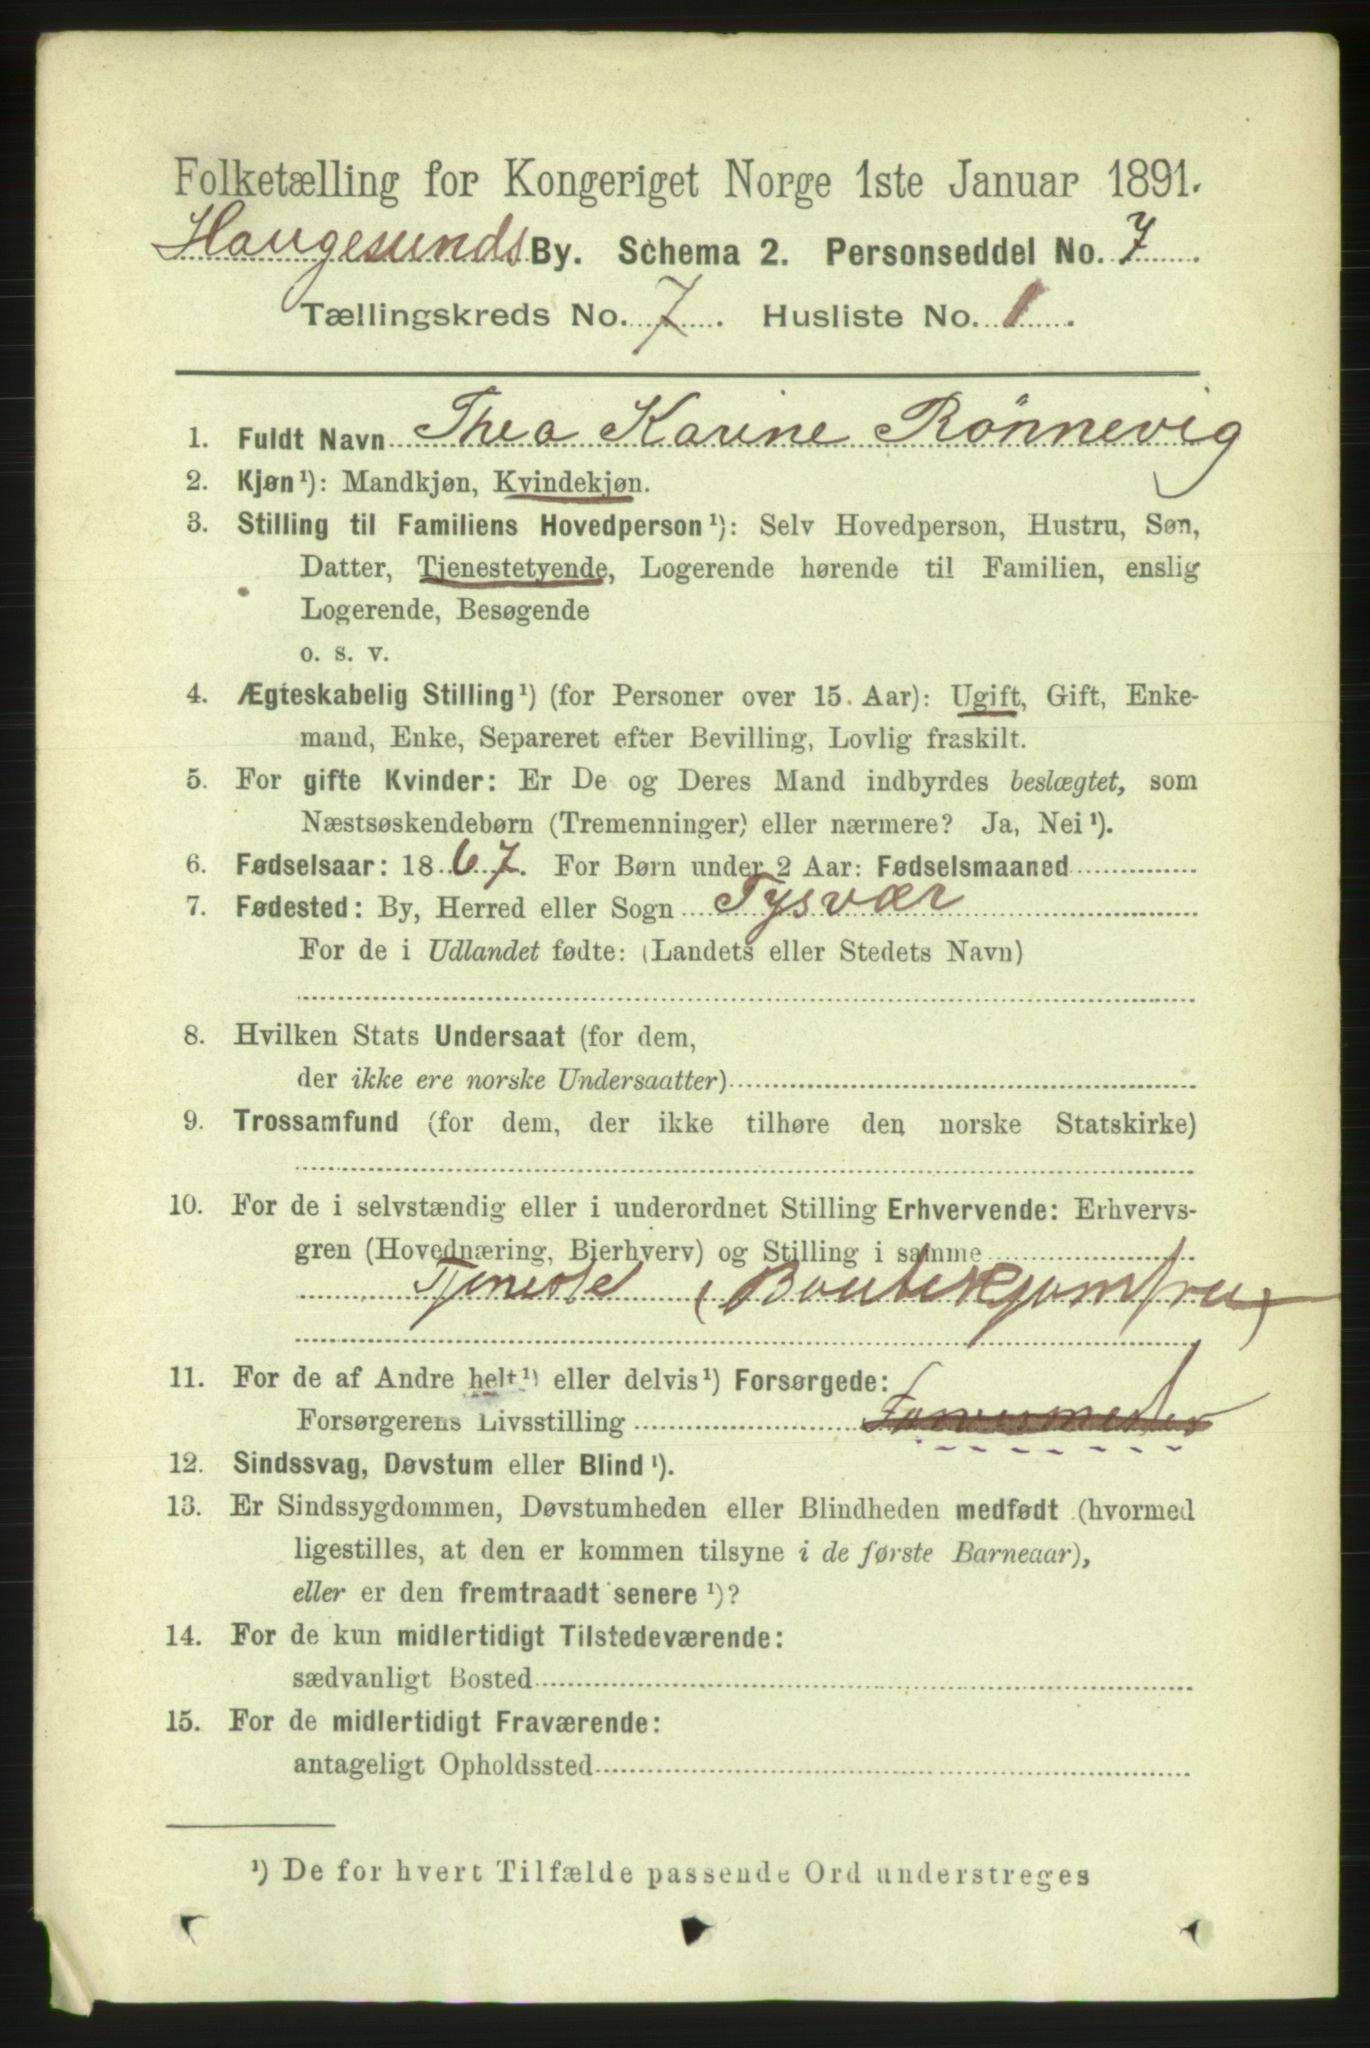 Folketælling for Kongeriget Norge 1ste Januar 1891.
Haugesunds By. Schema 2. Personseddel No. 7
Tællingskreds No. 7. Husliste No. 1.
1. Fuldt Navn Thea Karine Rönnevig
2. Kjøn¹): Mandkjøn, Kvindekjøn.
3. Stilling til Familiens Hovedperson¹): Selv Hovedperson, Hustru, Søn,
Datter, Tjenestetyende, Logerende hørende til Familien, enslig
Logerende, Besøgende
o. s. v.
4. Ægteskabelig Stilling¹) (for Personer over 15 Aar): Ugift, Gift, Enke-
mand, Enke, Separeret efter Bevilling, Lovlig fraskilt.
5. For gifte Kvinder: Er De og Deres Mand indbyrdes beslægtet, som
Næstsøskendebørn (Tremenninger) eller nærmere? Ja, Nei¹).
6. Fødselsaar: 1867. For Børn under 2 Aar: Fødselsmaaned
7. Fødested: By, Herred eller Sogn Tysvær
For de i Udlandet fødte: (Landets eller Stedets Navn)
8. Hvilken Stats Undersaat (for dem,
der ikke ere norske Undersaatter)
9. Trossamfund (for dem, der ikke tilhøre den norske Statskirke)
10. For de i selvstændig eller i underordnet Stilling Erhvervende: Erhvervs-
gren (Hovednæring, Bierhverv) og Stilling i samme
Tjeneste (Boutikjomfru)
11. For de af Andre helt¹) eller delvis¹) Forsørgede:
Forsørgerens Livsstilling
12. Sindssvag, Døvstum eller Blind¹).
13. Er Sindssygdommen, Døvstumheden eller Blindheden medfødt (hvormed
ligestilles, at den er kommen tilsyne i de første Barneaar),
eller er den fremtraadt senere¹)?
14. For de kun midlertidigt Tilstedeværende:
sædvanligt Bosted
15. For de midlertidigt Fraværende:
antageligt Opholdssted
¹) De for hvert Tilfælde passende Ord understreges